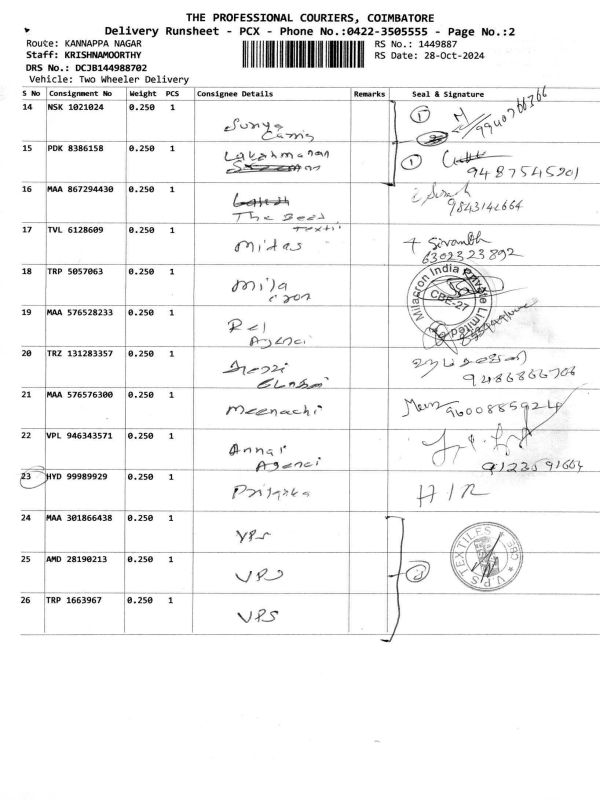 THE PROFESSIONAL COURIERS, COIMBATORE
Delivery Runsheet - PCX - Phone No.:0422-3505555 - Page No.:2
Route: KANNAPPA NAGAR
RS No.: 1449887
Staff: KRISHNAMOORTHY
RS Date: 28-Oct-2024
DRS No.: DCJB144988702
Vehicle: Two Wheeler Delivery
S No Consignment No Weight PCS Consignee Details Remarks Seal & Signature
14 NSK 1021024 0.250 1 Surya
1
9940766366
15 PDK 8386158 0.250 1 Lakshmanan
1
9487545201
16 MAA 867294430 0.250 1
The Bees
9843142664
17 TVL 6128609 0.250 1 Midas
6302323892
18 TRP 5057063 0.250 1 Mila
Milacron India Private Limited
CBE-27
19 MAA 576528233 0.250 1 Rel
Agenci
20 TRZ 131283357 0.250 1
9486866706
21 MAA 576576300 0.250 1 Meenachi
9600885924
22 VPL 946343571 0.250 1 Annai
Agenci
9122591664
23 HYD 99989929 0.250 1 Priyanka H/R
24 MAA 301866438 0.250 1 VPS
25 AMD 28190213 0.250 1 VPS
V.P.S TEXTILES
CBE
26 TRP 1663967 0.250 1 VPS